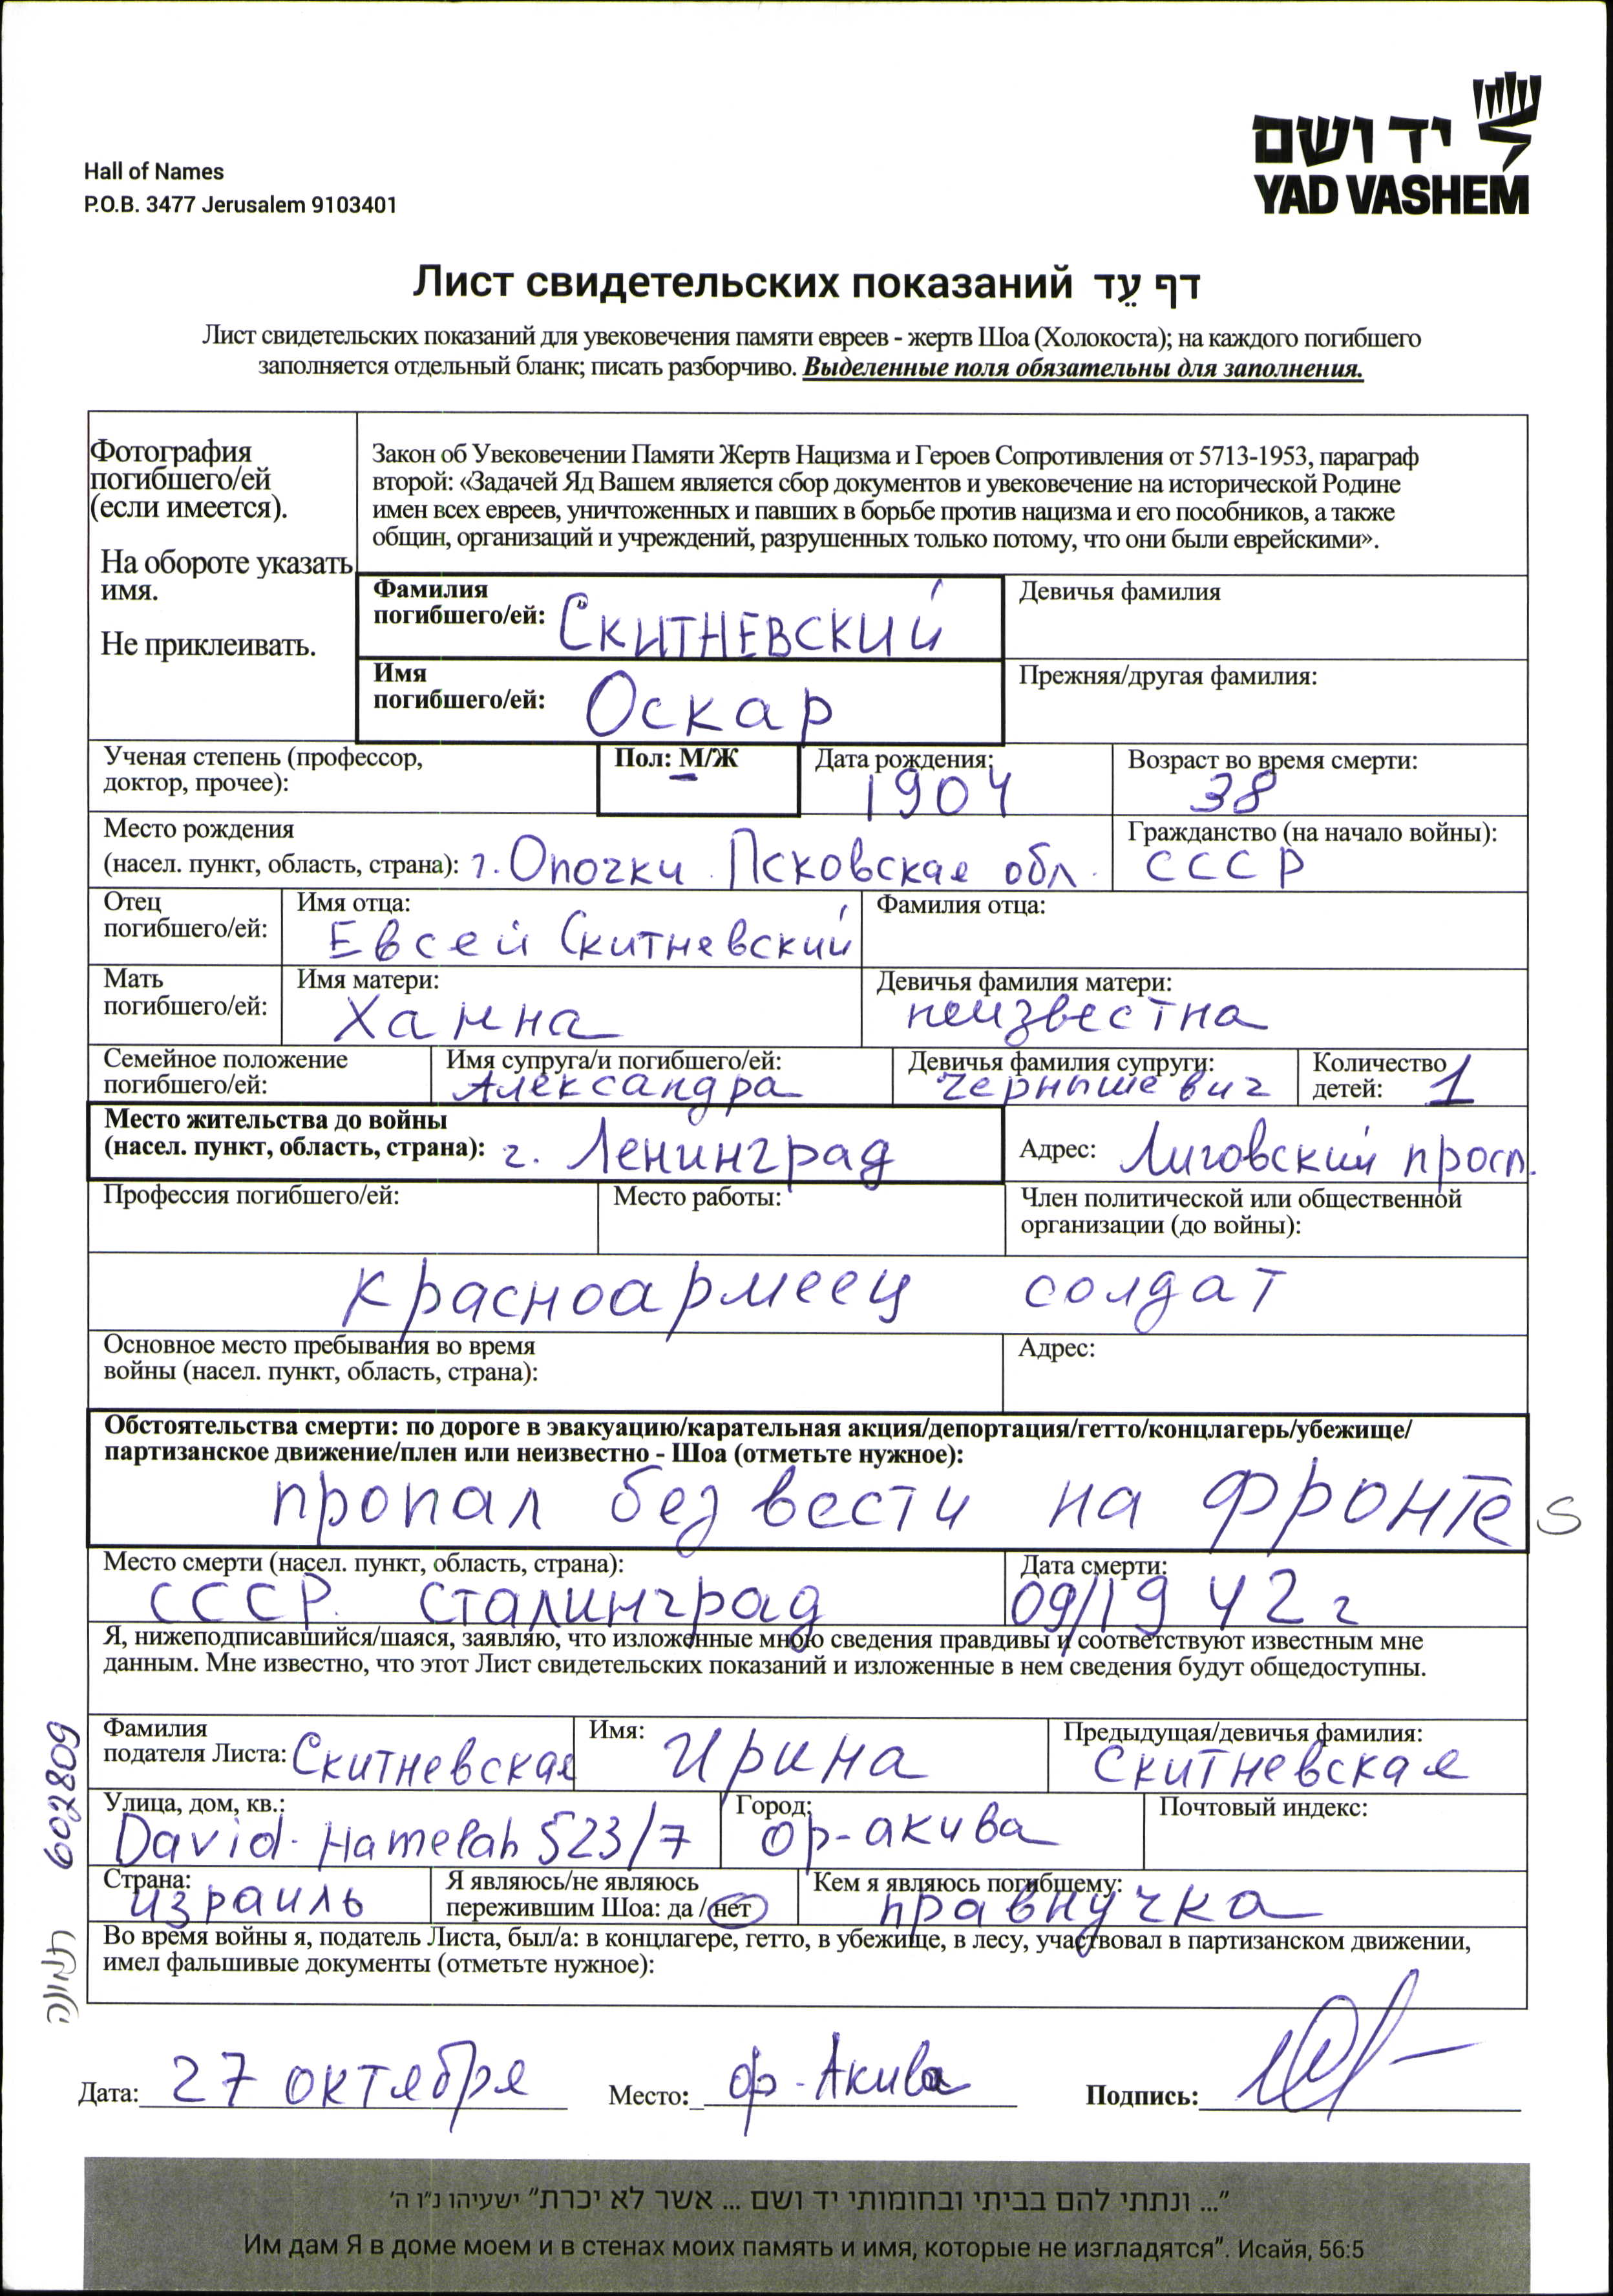 יד ושם
YAD VASHEM
Hall of Names
P.O.B. 3477 Jerusalem 9103401
Лист свидетельских показаний דף עֵד
Лист свидетельских показаний для увековечения памяти евреев - жертв Шоа (Холокоста); на каждого погибшего
заполняется отдельный бланк; писать разборчиво. Выделенные поля обязательны для заполнения.
Фотография
погибшего/ей
(если имеется).
На обороте указать
имя.
Не приклеивать.
Закон об Увековечении Памяти Жертв Нацизма и Героев Сопротивления от 5713-1953, параграф
второй: «Задачей Яд Вашем является сбор документов и увековечение на исторической Родине
имен всех евреев, уничтоженных и павших в борьбе против нацизма и его пособников, а также
общин, организаций и учреждений, разрушенных только потому, что они были еврейскими».
Фамилия
погибшего/ей: Скитневский
Девичья фамилия
Имя
погибшего/ей: Оскар
Прежняя/другая фамилия:
Ученая степень (профессор,
доктор, прочее):
Пол: М/Ж
Дата рождения:
1904
Возраст во время смерти:
38
Место рождения
(насел. пункт, область, страна): г. Опочки Псковская обл.
Гражданство (на начало войны):
СССР
Отец
погибшего/ей:
Имя отца:
Евсей Скитневский
Фамилия отца:
Мать
погибшего/ей:
Имя матери:
Ханна
Девичья фамилия матери:
неизвестна
Семейное положение
погибшего/ей:
Имя супруга/и погибшего/ей:
Александра
Девичья фамилия супруги:
Чернышевич
Количество
детей: 1
Место жительства до войны
(насел. пункт, область, страна): г. Ленинград
Адрес: Лиговский просп.
Профессия погибшего/ей:
Место работы:
Член политической или общественной
организации (до войны):
красноармеец солдат
Основное место пребывания во время
войны (насел. пункт, область, страна):
Адрес:
Обстоятельства смерти: по дороге в эвакуацию/карательная акция/депортация/гетто/концлагерь/убежище/
партизанское движение/плен или неизвестно - Шоа (отметьте нужное):
пропал без вести на фронте S
Место смерти (насел. пункт, область, страна):
СССР. Сталинград
Дата смерти:
09/1942 г
Я, нижеподписавшийся/шаяся, заявляю, что изложенные мною сведения правдивы и соответствуют известным мне
данным. Мне известно, что этот Лист свидетельских показаний и изложенные в нем сведения будут общедоступны.
Фамилия
подателя Листа: Скитневская
Имя: Ирина
Предыдущая/девичья фамилия:
Скитневская
Улица, дом, кв.:
David-Hamelah 523/7
Город:
ор-акива
Почтовый индекс:
Страна:
израиль
Я являюсь/не являюсь
пережившим Шоа: да / нет
Кем я являюсь погибшему:
правнучка
Во время войны я, податель Листа, был/а: в концлагере, гетто, в убежище, в лесу, участвовал в партизанском движении,
имел фальшивые документы (отметьте нужное):
602809
Дата: 27 октября
Место: ор-Акива
Подпись:
"... ונתתי להם בביתי ובחומותי יד ושם ... אשר לא יכרת" ישעיהו נ"ו ה'
Им дам Я в доме моем и в стенах моих память и имя, которые не изгладятся". Исайя, 56:5